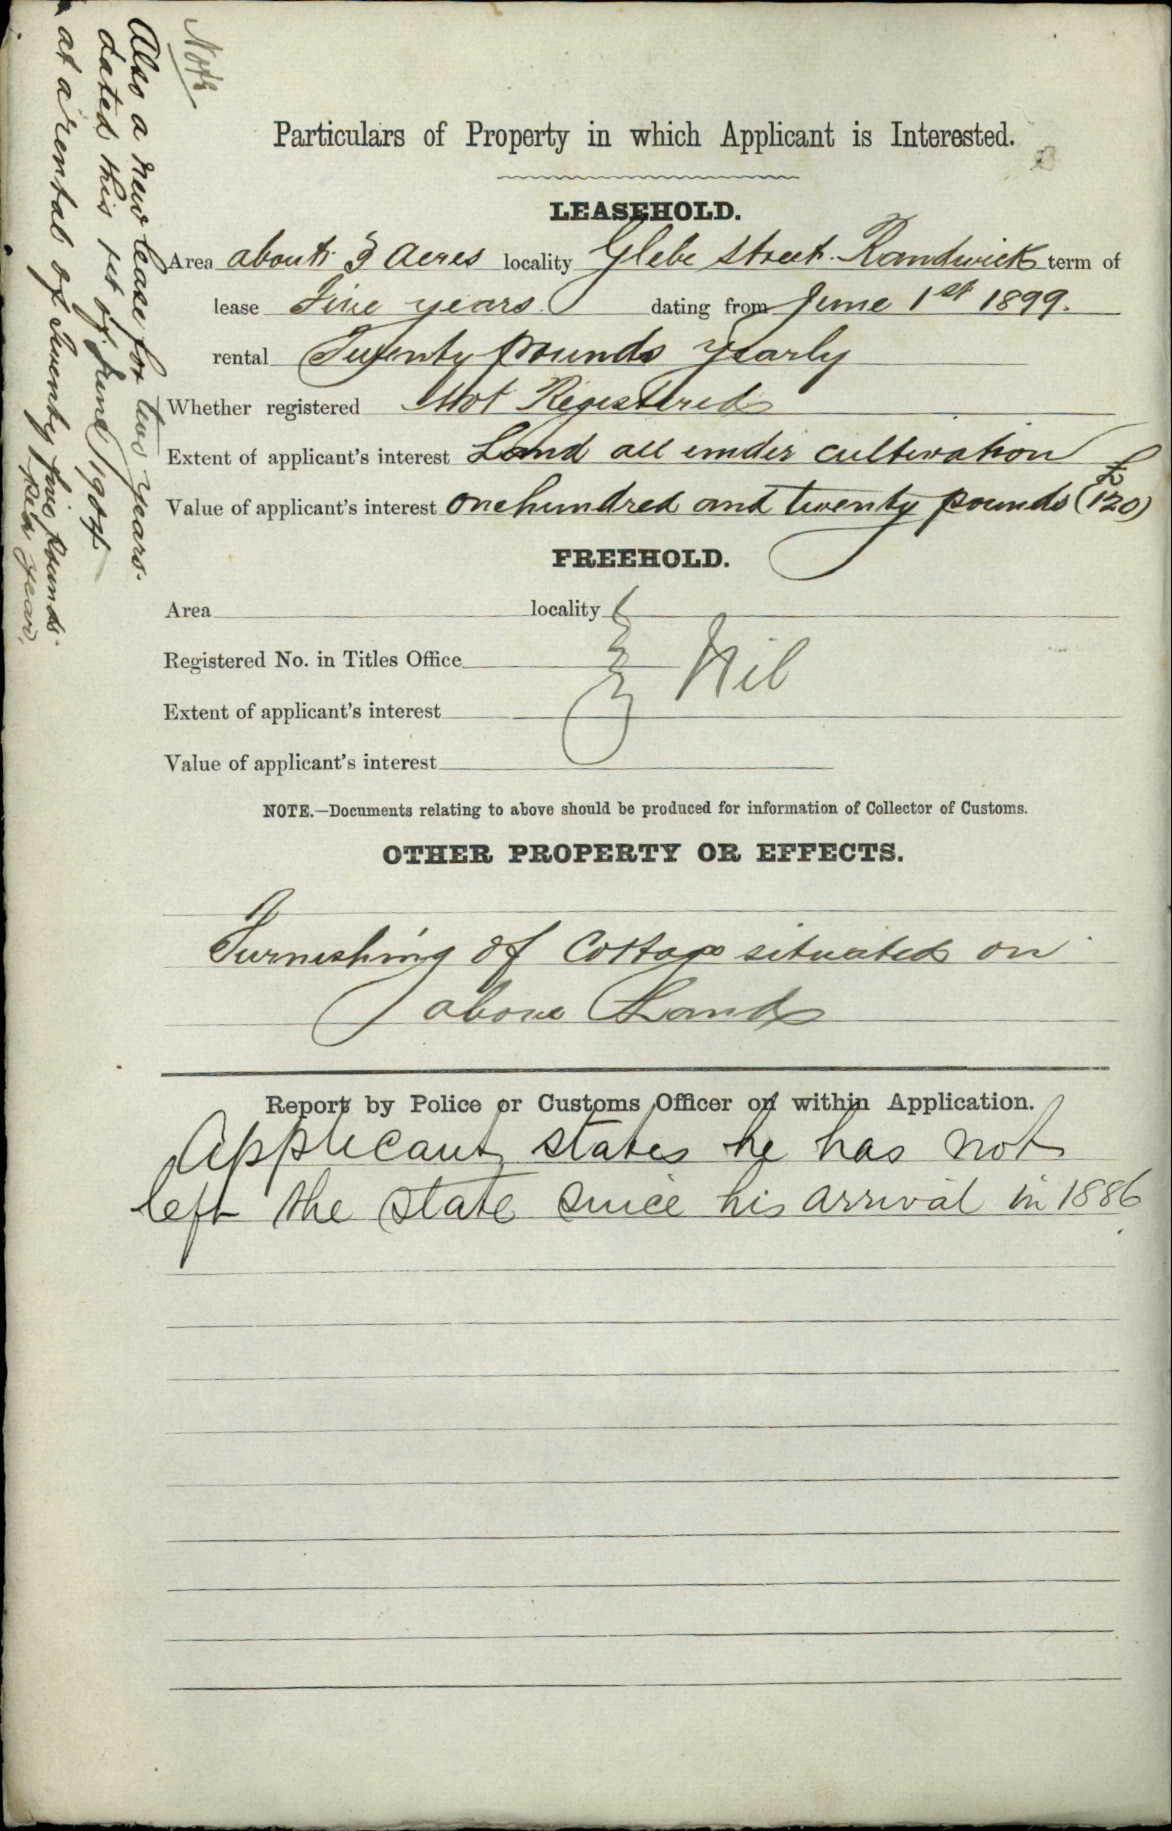 Note
Also a new lease for two years.
dated this 1st of June 1904
at a rental of Twenty five Pounds
per year.
Particulars of Property in which Applicant is Interested.
LEASEHOLD.
Area about 3 Acres locality Glebe Street. Randwick term of
lease Five years. dating from June 1st 1899.
rental Twenty pounds yearly
Whether registered Not Registered
Extent of applicant's interest Land all under cultivation
Value of applicant's interest one hundred and twenty pounds (£120)
FREEHOLD.
Area locality
Registered No. in Titles Office Nil
Extent of applicant's interest
Value of applicant's interest
NOTE.—Documents relating to above should be produced for information of Collector of Customs.
OTHER PROPERTY OR EFFECTS.
Furnishing of Cottage situated on
above Land
Report by Police or Customs Officer on within Application.
Applicant states he has not
left the State since his arrival in 1886